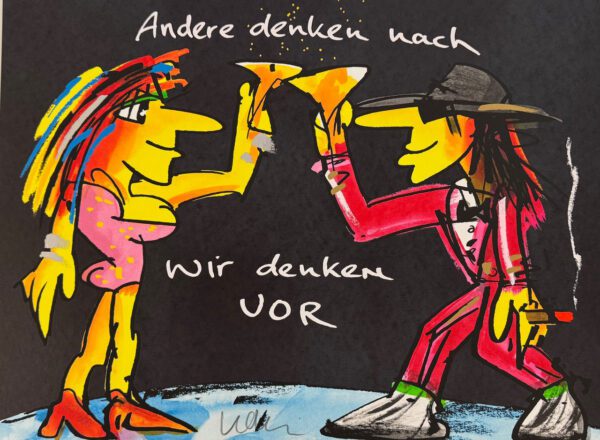 Andere denken nach
Wir denken
VOR